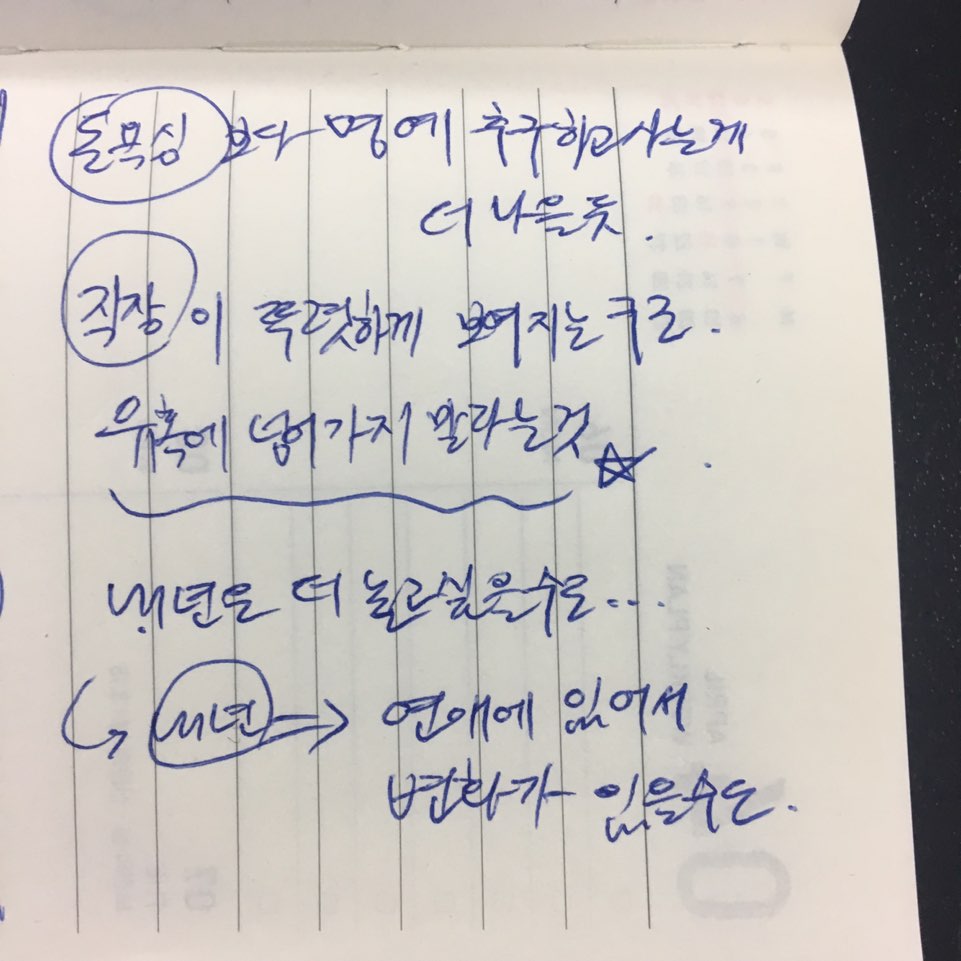 돈욕심 보다 명예 추구하고 사는게
더 나을듯.
직장이 뚜렷하게 보여지는 쿠르.
유혹에 넘어가지 말라는것 ☆.
내년도 더 놀고싶을수도...
↪ 내년 → 연애에 있어서
변화가 있을수도.